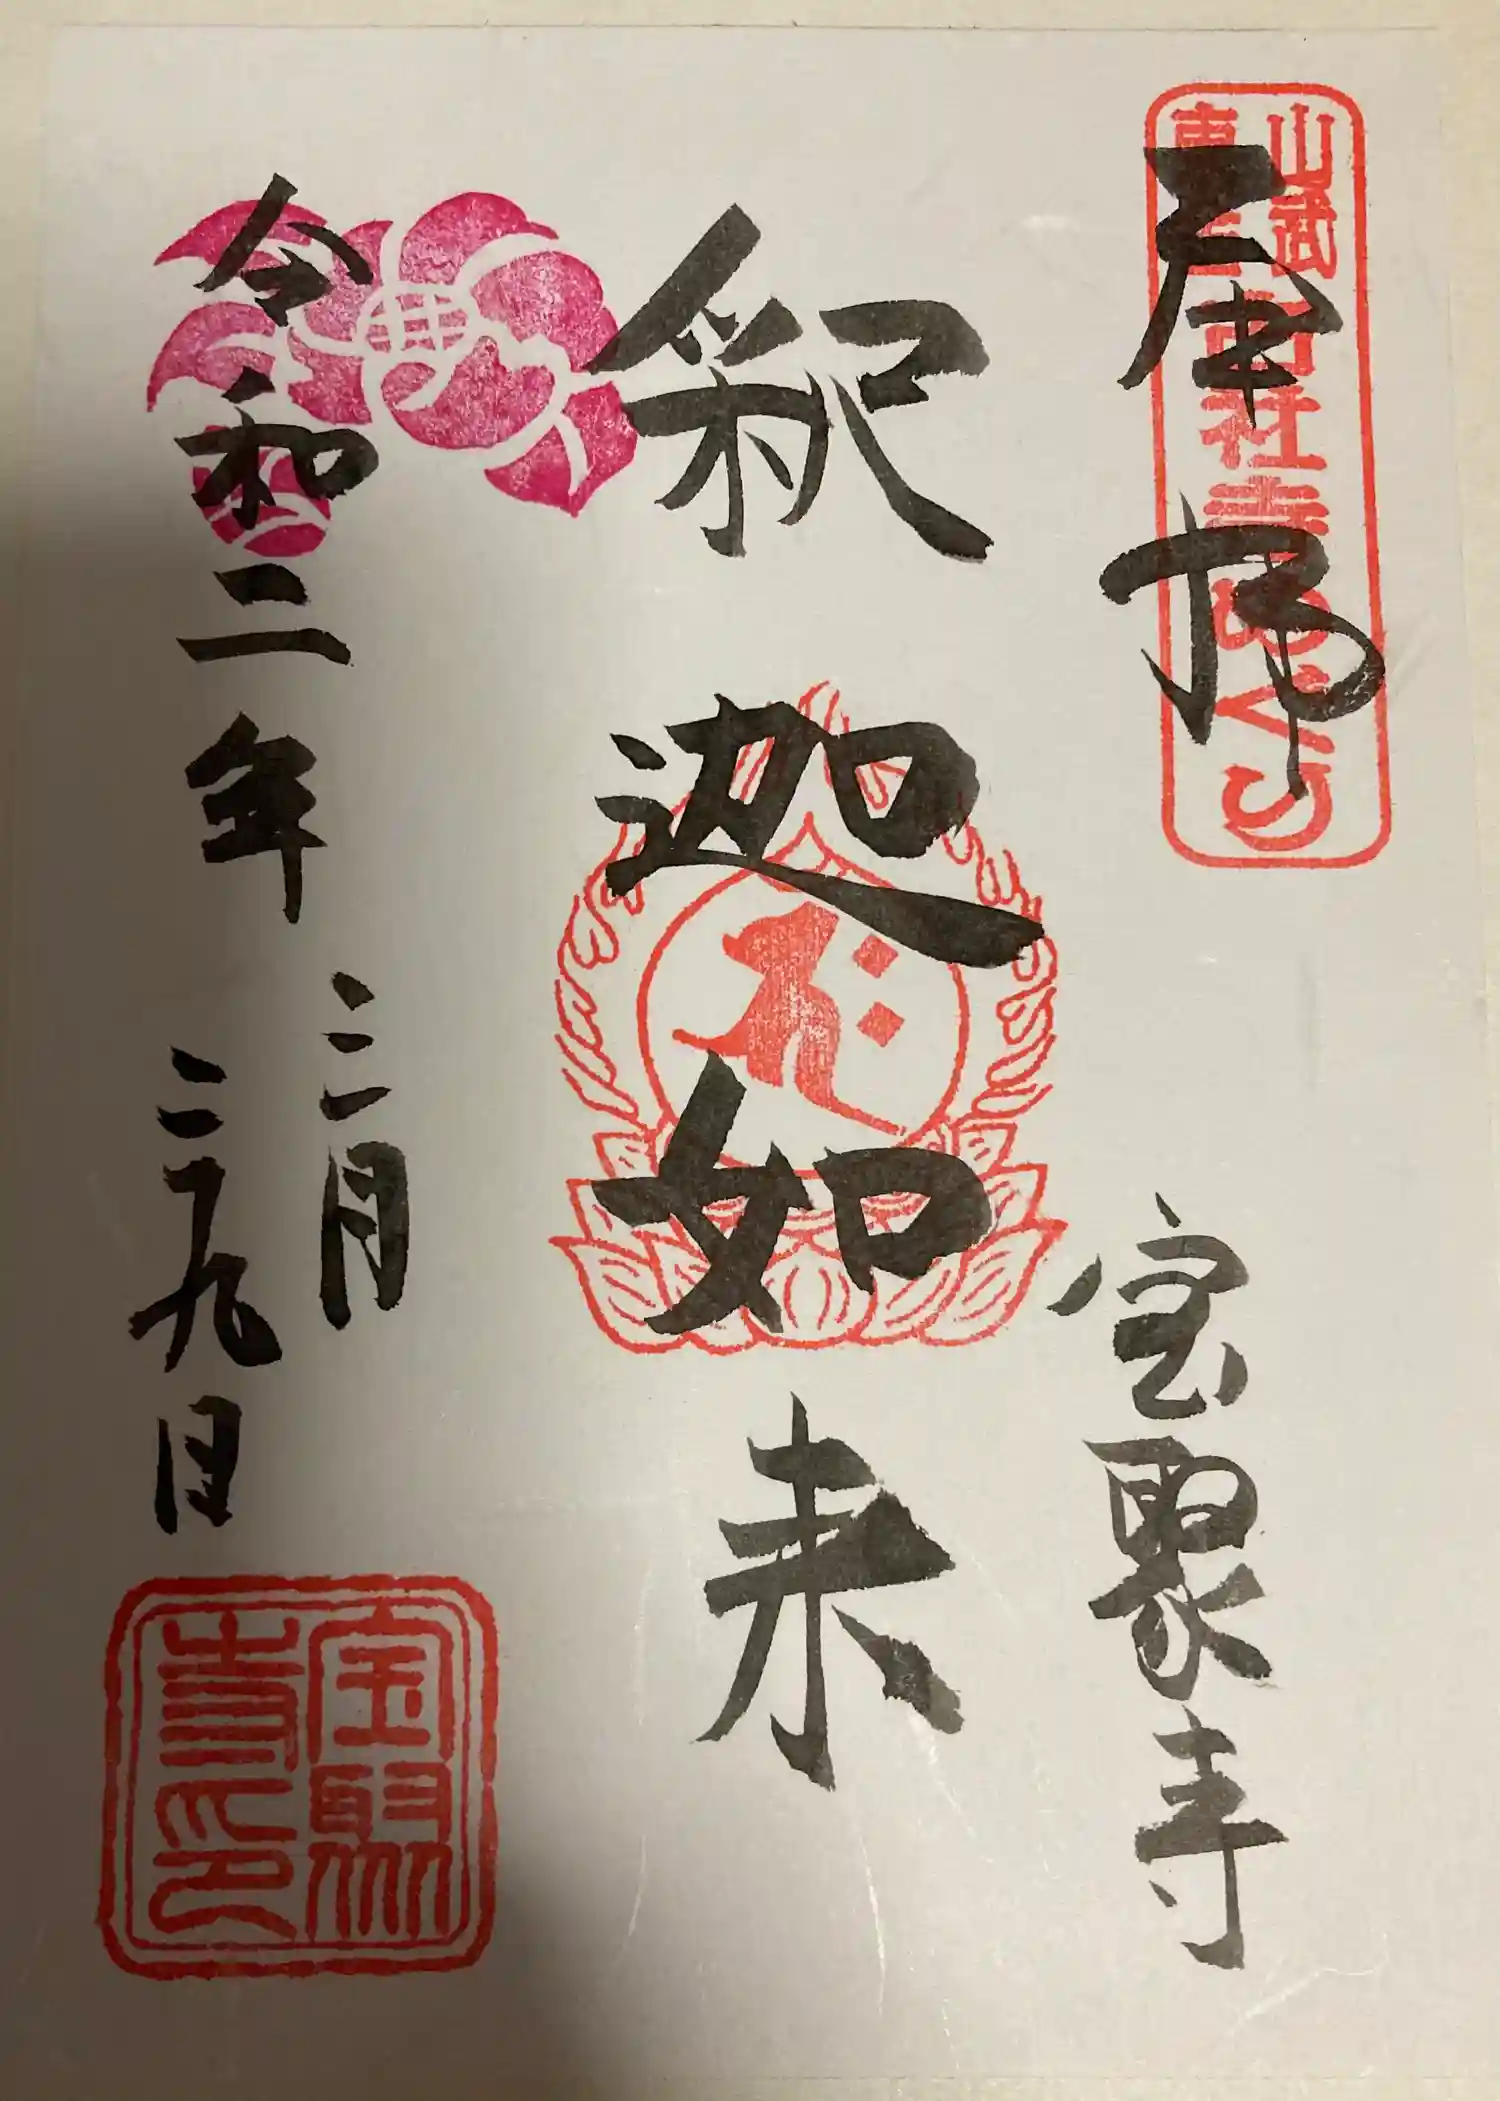 奉拝
山武
古社寺めぐり
宝聚寺
釈迦如来
令和二年
三月
二九日
宝聚寺印